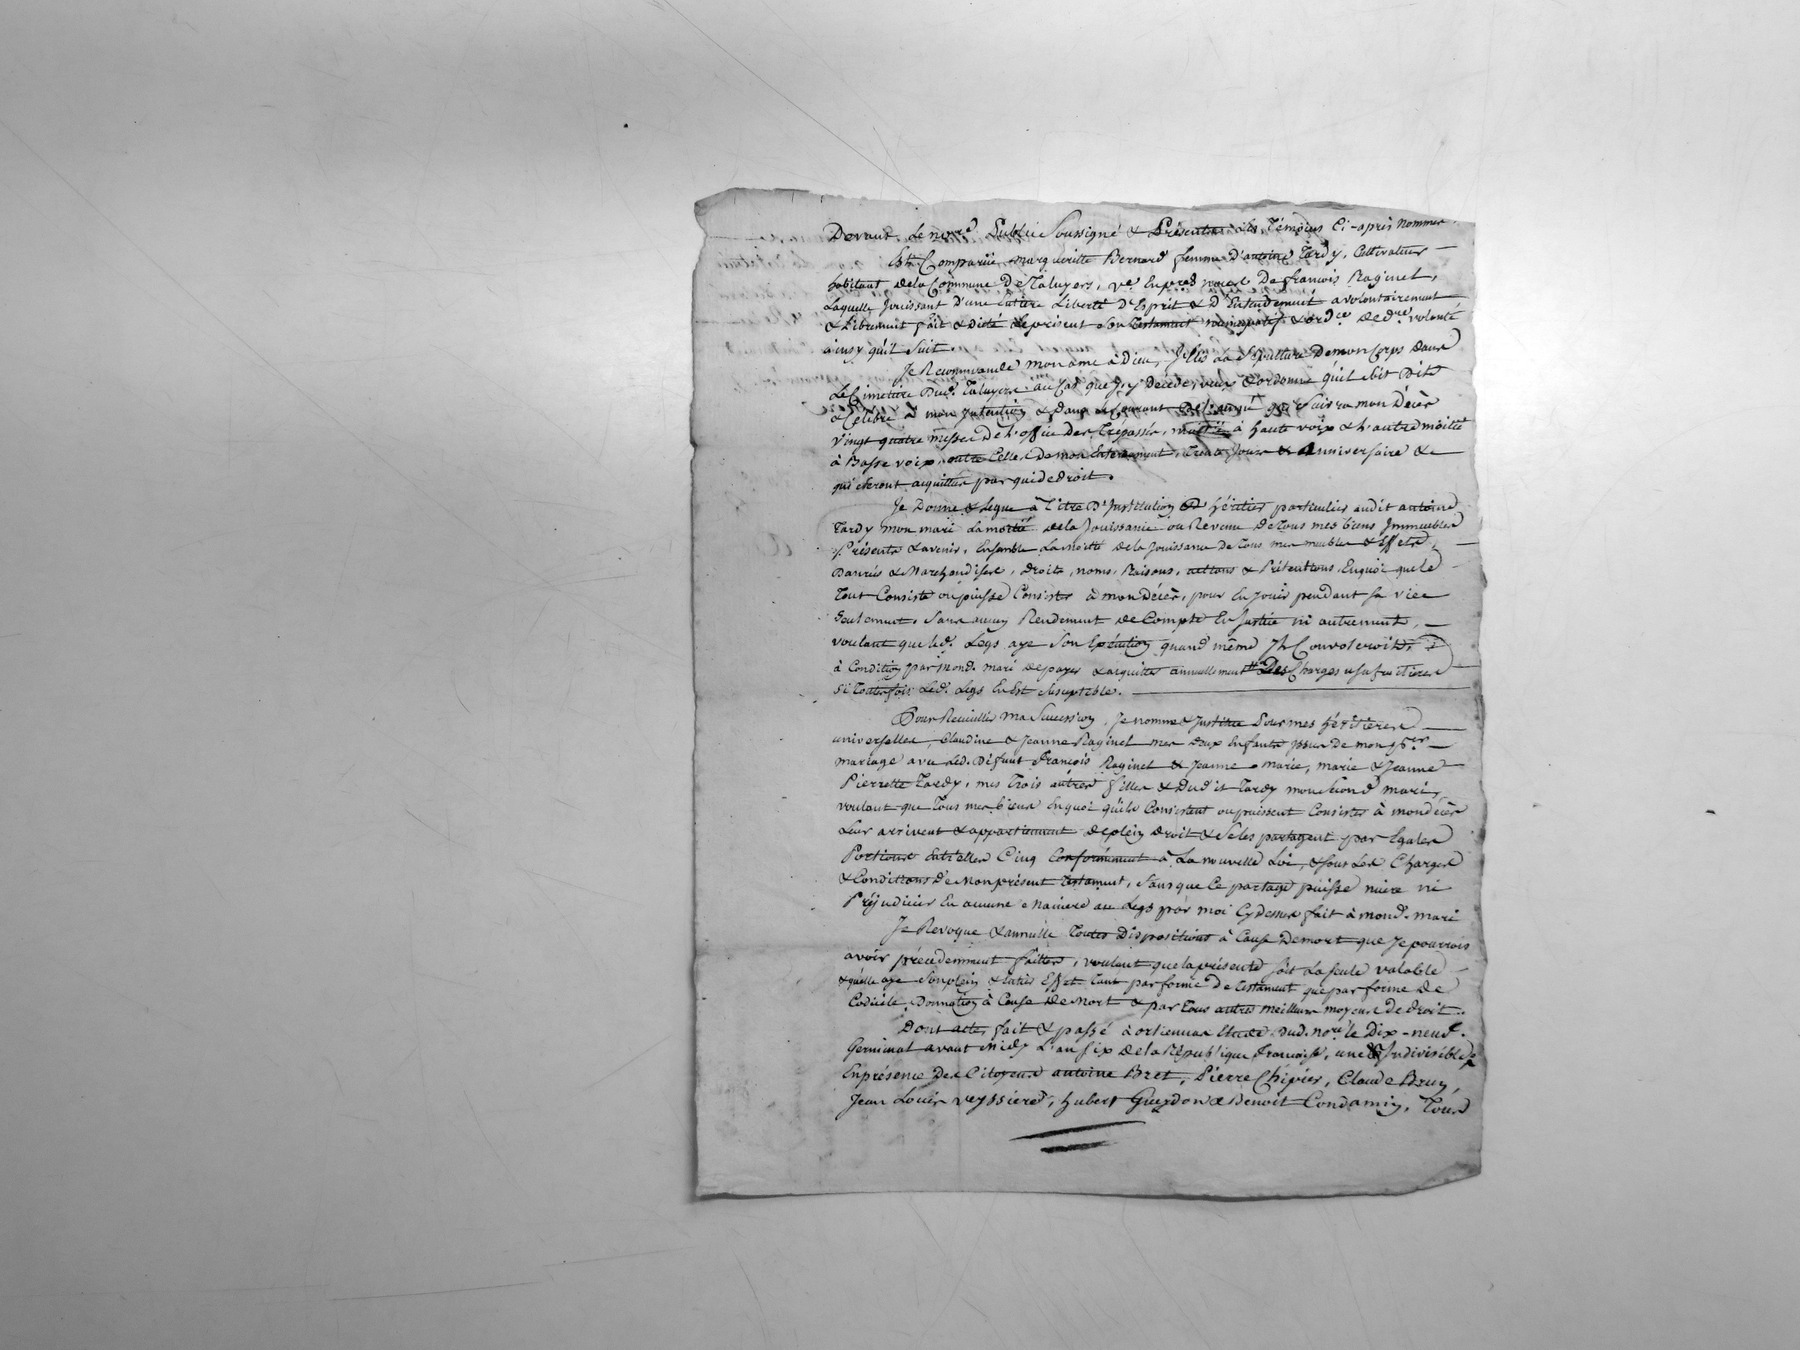 Devant Le no.re Public Soussigné & Présents les Témoins Ci-après nommés
Est Comparüe margueritte Bernard femme d'antoine Tardy, Cultivateur
habitant dela Commune De Taluyers, v.e En pres noces De francois Raginel,
Laquelle Jouissant d'une Entiere Liberté d'Esprit & d'Entendement a volontairement
& Librement fait & dicté Le présent Son Testament nuncupatif & ord.ce de d.re volonté
ainsy qu'il Suit.
Je Recommande mon ame à Dieu, J'Elis La Sépulture De mon Corps dans
Le Cimetiere Dud. Taluyers au Cas que J'y Décede, veux & ordonne qu'il Soit Dit
& Célébré à mon Intention & Dans Le Courant De L'année qui Suivra mon Décès
vingt quatre messes De L'office Des Trépassés, moitié à haute voix & L'autre moitié
à Basse voix, outre Celles De mon Enterrement, Trente Jours & anniversaire &
qui Seront acquittés par qui de droit.
Je Donne & Legue à Titre D'Institution & héritier particulier audit antoine
Tardy mon mari La moitié dela Jouissance ou Revenu De Tous mes biens Immeubles
Présents & avenir, Ensemble La moitié dela Jouissance De Tous mes meubles & Effets,
Danrées & Marchandises, droits, noms, Raisons, actions & Prétentions En quoi que Le
Tout Consiste ou puisse Consister à mon décès, pour En Jouir pendant Sa vie
Seulement, Sans aucun Rendement de Compte En Justice ni autrement,
voulant que led. Legs aye Son Exécution quand même Il Convoleroit,
à Condition par mond. mari de payer & acquitter annuellement Les Charges usufruitieres
Si Toutefois Led. Legs En Est Susceptible.
Pour Recueillir ma Succession, Je nomme & Institue Pour mes héritieres
universelles, Claudine & Jeanne Raginel mes deux Enfants Issus De mon p.er
mariage avec Led. Défunt françois Raginel & Jeanne-Marie, Marie & Jeanne
Pierrette Tardy, mes Trois autres filles & Dudit Tardy mon second mari,
voulant que Tous mes biens En quoi qu'ils Consistent ou puissent Consister à mon décès
Leur arrivent & appartiennent de plein droit & Se les partagent par Egales
Portions Entr'elles Cinq Conformément à La nouvelle Loi, & Sous Les Charges
& Conditions de Mon présent Testament, Sans que Ce partage puisse nuire ni
Préjudicier En aucune Maniere au Legs par moi Cydessus fait à mond. mari
Je Revoque & annulle Toutes Dispositions à Cause De mort que Je pourrois
avoir précédemment faittes, voulant que la présente soit La Seule valable
& qu'elle aye Son plein & Entier Effet Tant par forme De Testament que par forme De
Codicile, Donnation à Cause de Mort & par Tous autres meilleurs moyens De droit.
Dont acte, fait & passé à orlienas Etude Dud. no.re le Dix-neuf
Germinal avant Midy L'an Six de la République françoise, une & Indivisible,
En présence Des Citoyens antoine Bret, Pierre Chipier, Claude Brun,
Jean Louis veyssiere, hubert Gueydon & Benoit Condamin, Tous